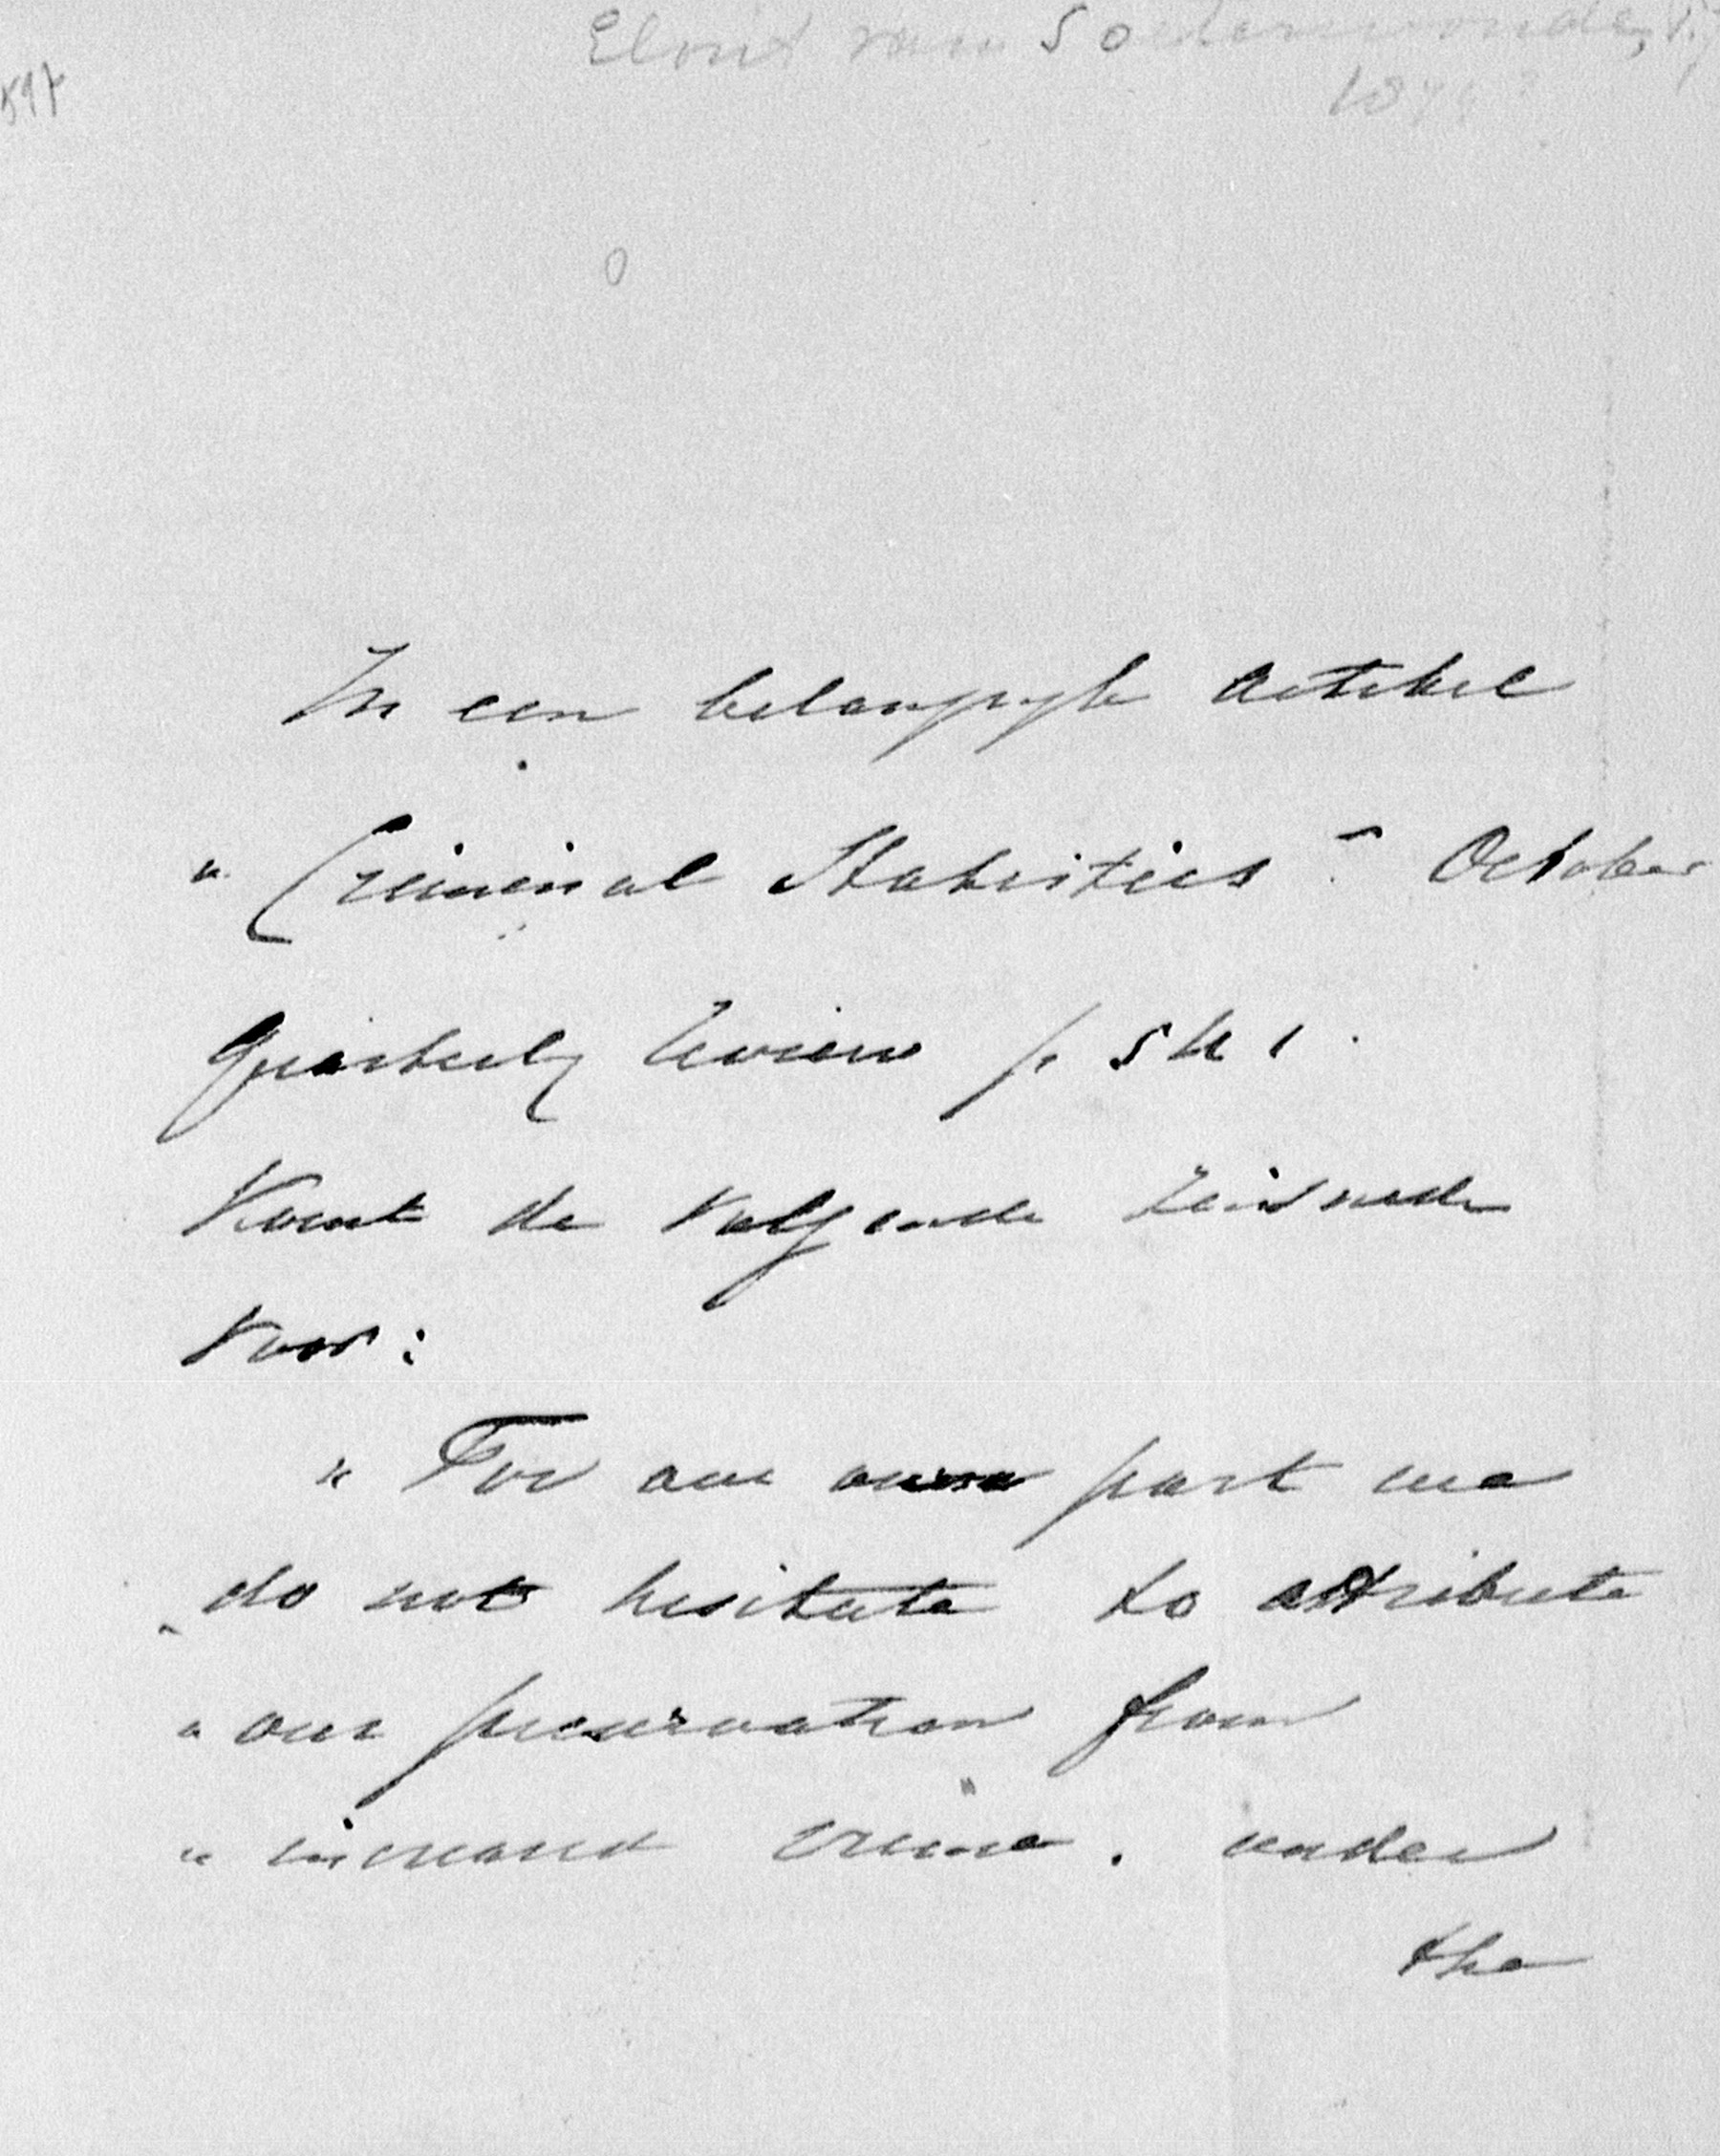 Elout van Soeterwoude,
597
In een belangryk artikel
"Criminal Statistics" October
Quarterly Review p
komt de volgende zinsnede
voor:
"For our own part we
"do not hesitate to attribute
"our preservation from
"increased crime. under
the